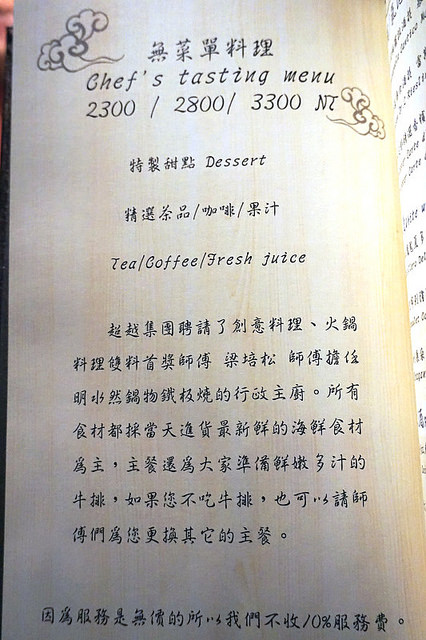 無菜單料理
Chef's tasting menu
2300 / 2800/ 3300 NT
特製甜點 Dessert
精選茶品/咖啡/果汁
Tea/Coffee/Fresh juice
超越集團聘請了創意料理、火鍋
料理雙料首獎師傅 梁培松 師傅擔任
明水然鍋物鐵板燒的行政主廚。所有
食材都採當天進貨最新鮮的海鮮食材
為主，主餐還為大家準備鮮嫩多汁的
牛排，如果您不吃牛排，也可以請師
傅們為您更換其它的主餐。
因為服務是無價的所以我們不收10%服務費。